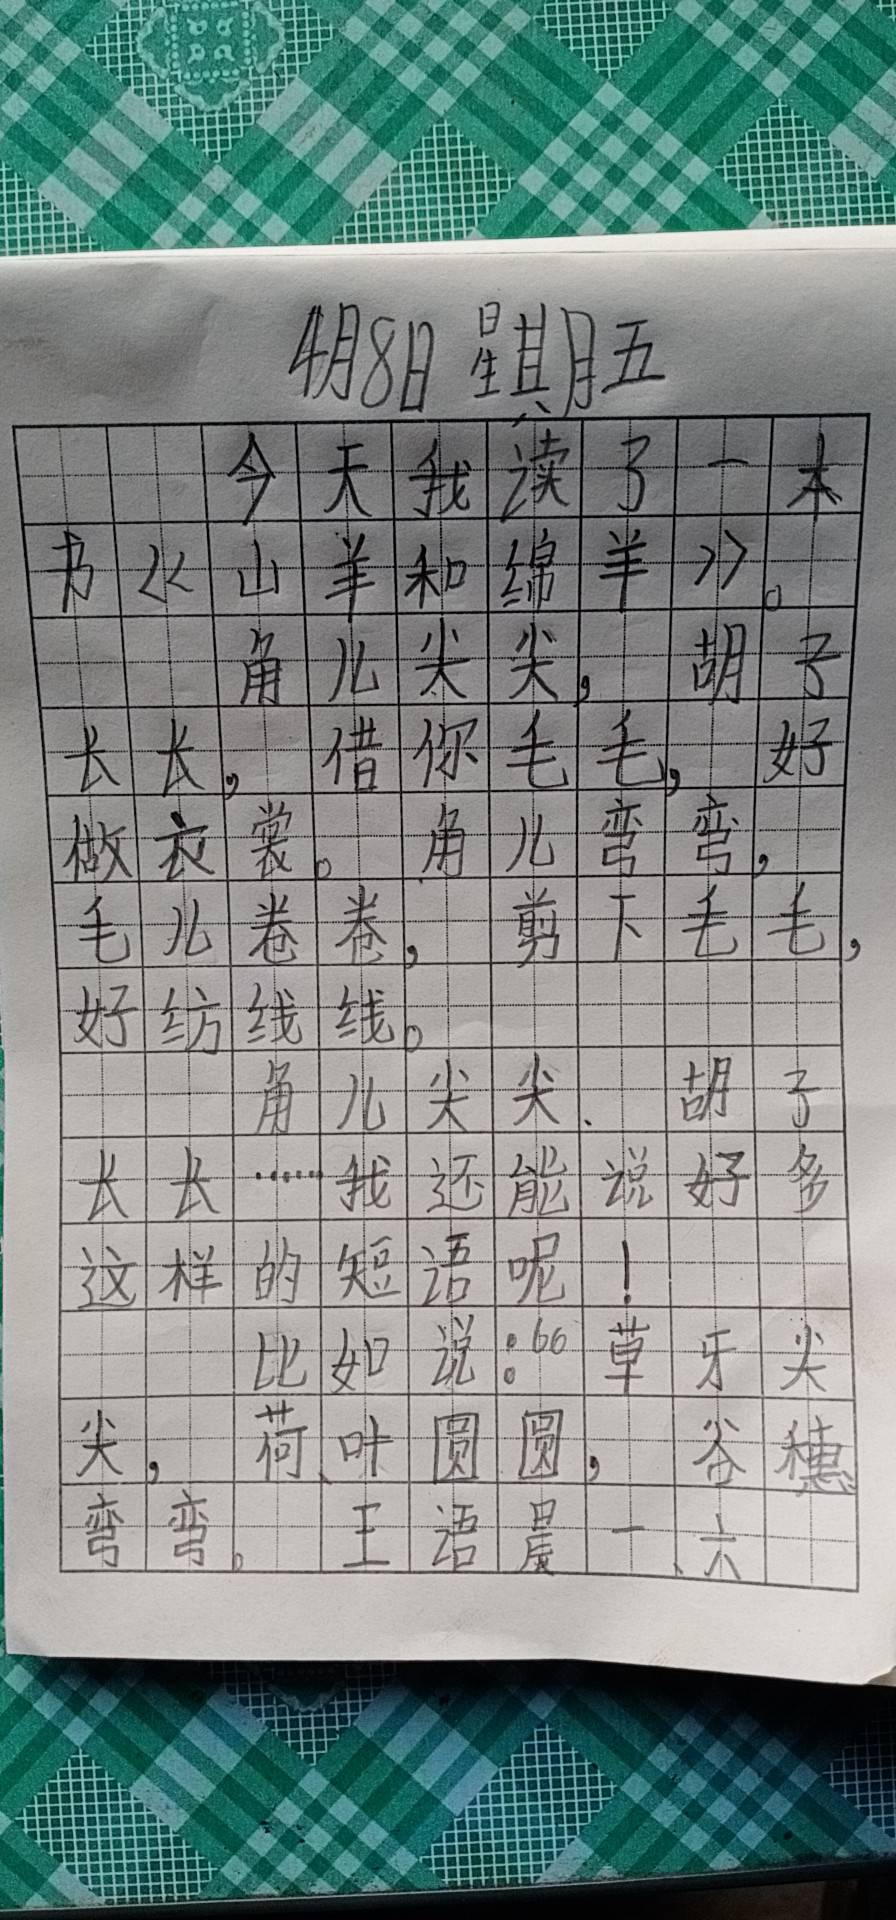 4月8日 星期五
今天我读了一本
书《山羊和绵羊》。
角儿尖尖，胡子
长长，借你毛毛，好
做衣裳。角儿弯弯，
毛儿卷卷，剪下毛毛，
好纺线线。
角儿尖尖、胡子
长长……我还能说好多
这样的短语呢！
比如说：“草牙尖
尖，荷叶圆圆，谷穗
弯弯。王语晨一、六